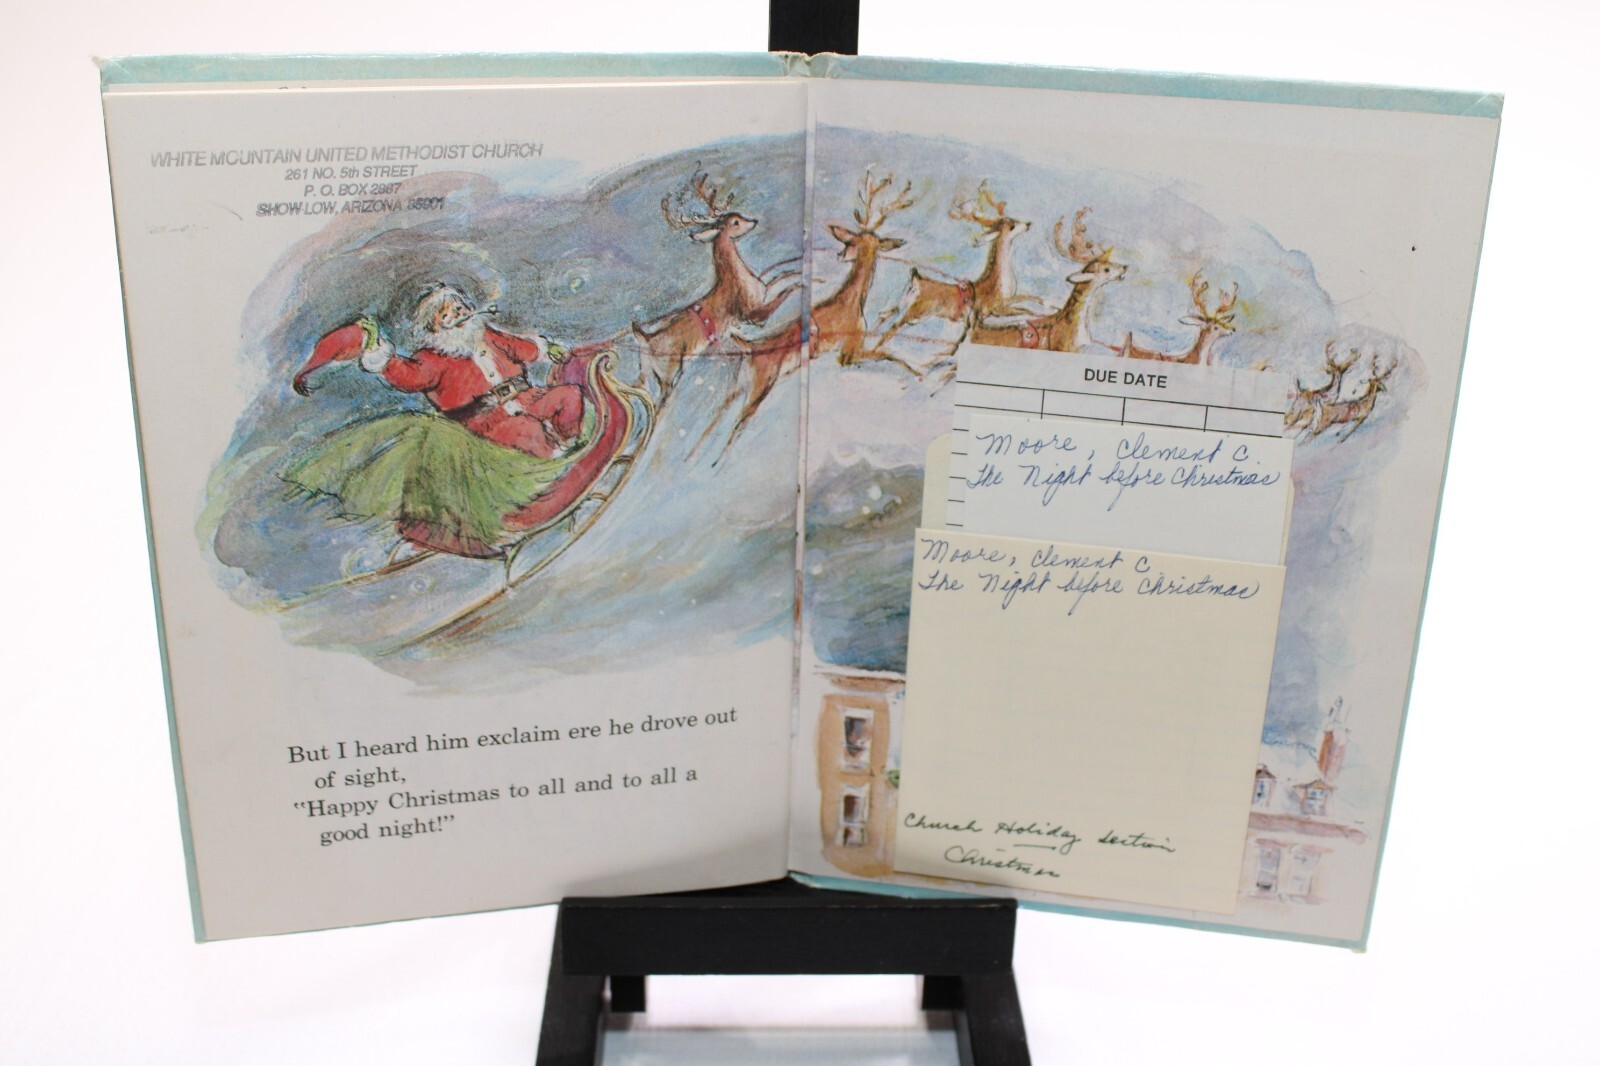 WHITE MOUNTAIN UNITED METHODIST CHURCH
261 NO. 5th STREET
P. O. BOX 2987
SHOW LOW, ARIZONA 85901
But I heard him exclaim ere he drove out
of sight,
“Happy Christmas to all and to all a
good night!”
DUE DATE
Moore, Clement C
The Night before Christmas
Moore, Clement C
The Night before Christmas
Church Holiday Section
Christmas